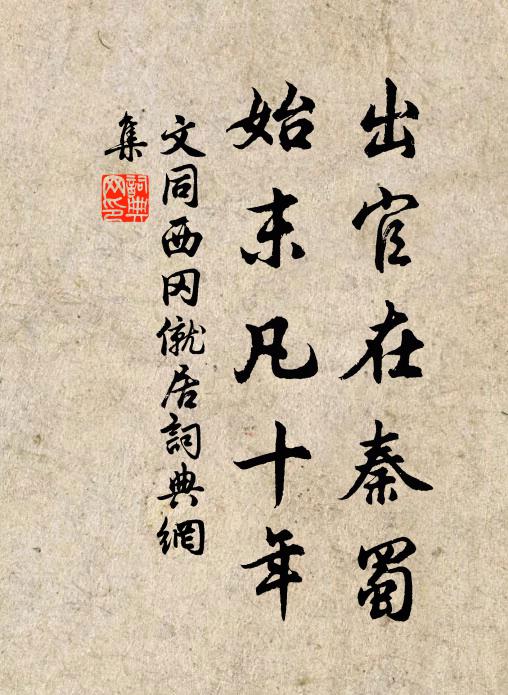 出官在秦蜀
始末凡十年
文同西冈僦居詞典網
集
詞典網印